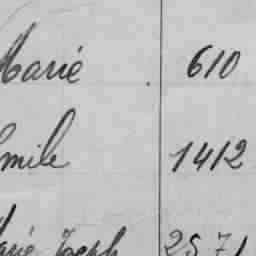 Marie 610
Emile 1412
Marie Joseph 2571